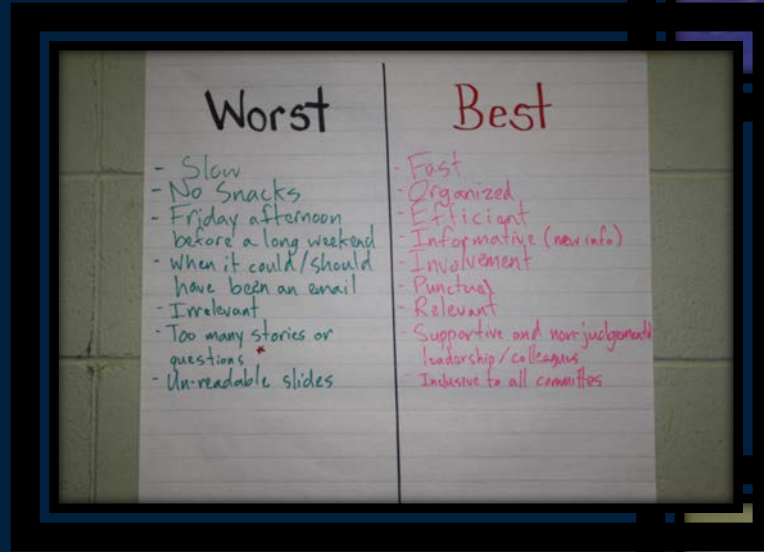 Worst
- Slow
- No Snacks
- Friday afternoon
before a long weekend
- When it could/should
have been an email
- Irrelevant
- Too many stories or
questions *
- Un-readable slides
Best
- Fast
- Organized
- Efficient
- Informative (new info)
- Involvement
- Punctual
- Relevant
- Supportive and non-judgemental
leadership/colleagues
- Inclusive to all committes